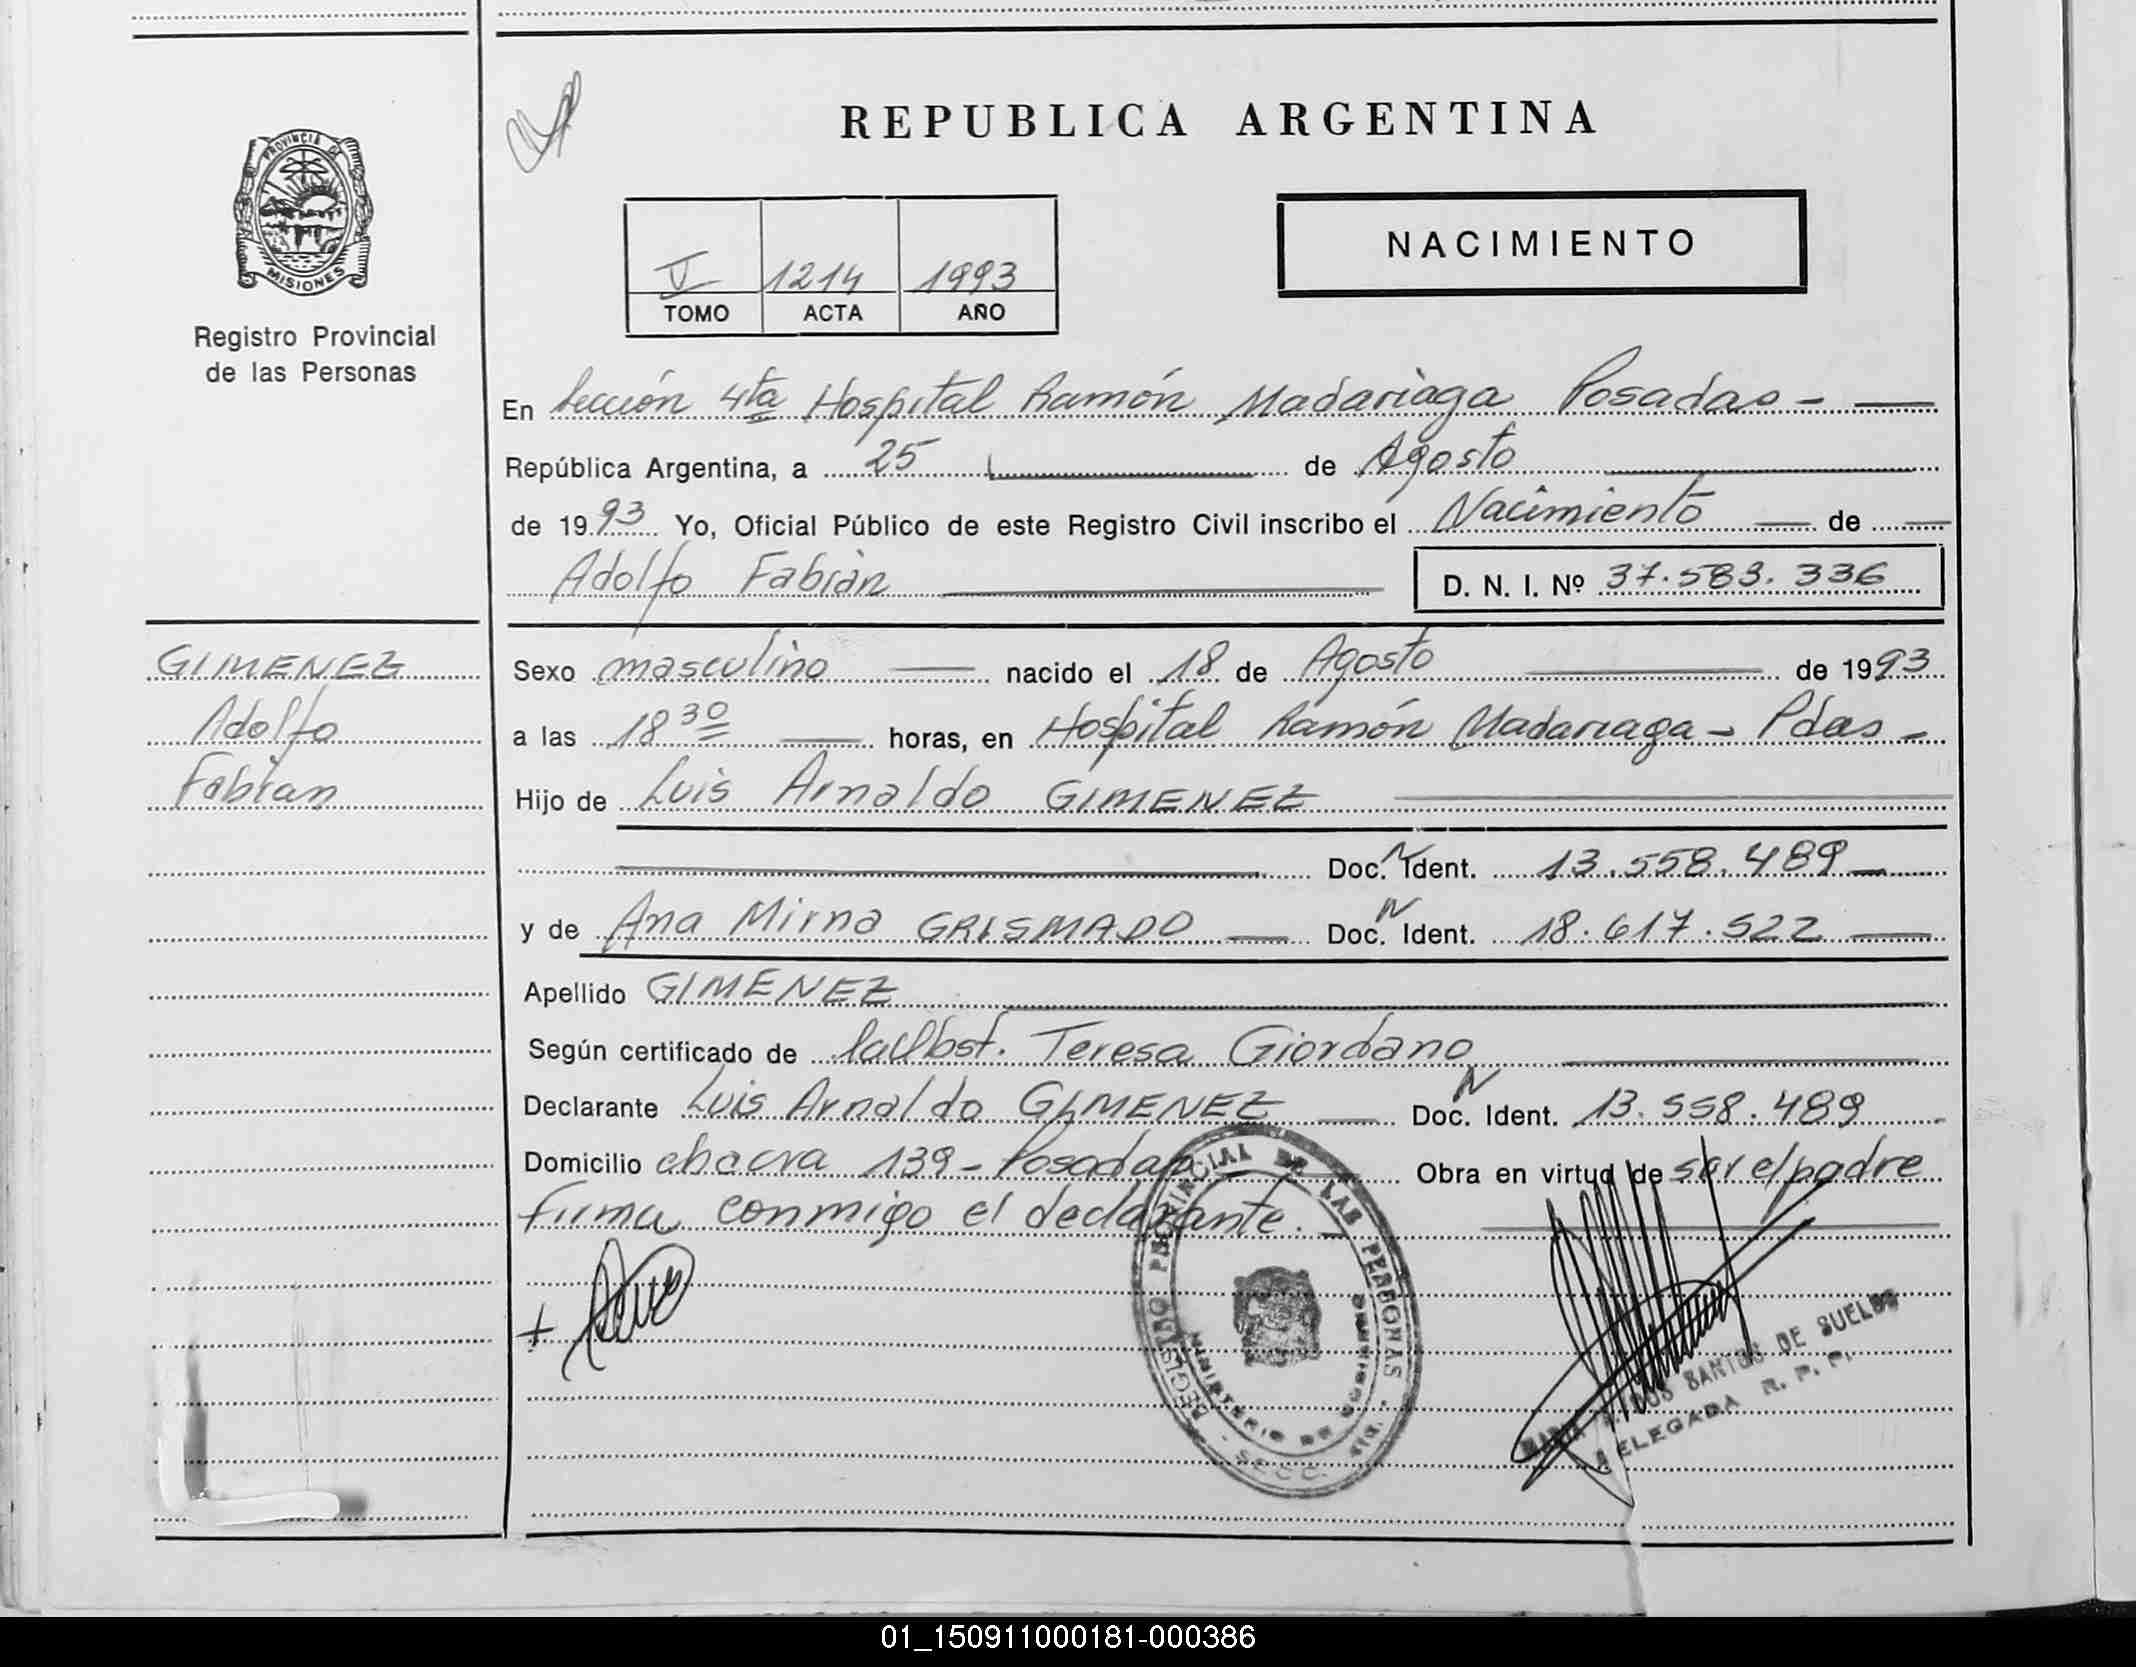 REPUBLICA ARGENTINA
PROVINCIA DE
MISIONES
Registro Provincial
de las Personas
NACIMIENTO
V 1214 1993
TOMO ACTA AÑO
En Sección 4ta Hospital Ramón Madariaga Posadas -
República Argentina, a 25 de Agosto
de 1993 Yo, Oficial Público de este Registro Civil inscribo el Nacimiento de
Adolfo Fabián D. N. I. Nº 37.583.336
GIMENEZ
Adolfo
Fabian
Sexo masculino nacido el 18 de Agosto de 1993
a las 18 30 horas, en Hospital Ramón Madariaga - Pdas -
Hijo de Luis Arnaldo GIMENEZ
Doc. N Ident. 13.558.489
y de Ana Mirna GRISMADO Doc. N Ident. 18.617.522
Apellido GIMENEZ
Según certificado de Teresa Giordano
Declarante Luis Arnaldo GIMENEZ Doc. N Ident. 13.558.489
Domicilio chacra 139 - Posadas Obra en virtud de ser el padre
Firma conmigo el declarante.
REGISTRO PROVINCIAL DE LAS PERSONAS
MINISTERIO DE GOBIERNO
DOS SANTOS DE SUELDO
DELEGADA R. P. P.
01_150911000181-000386